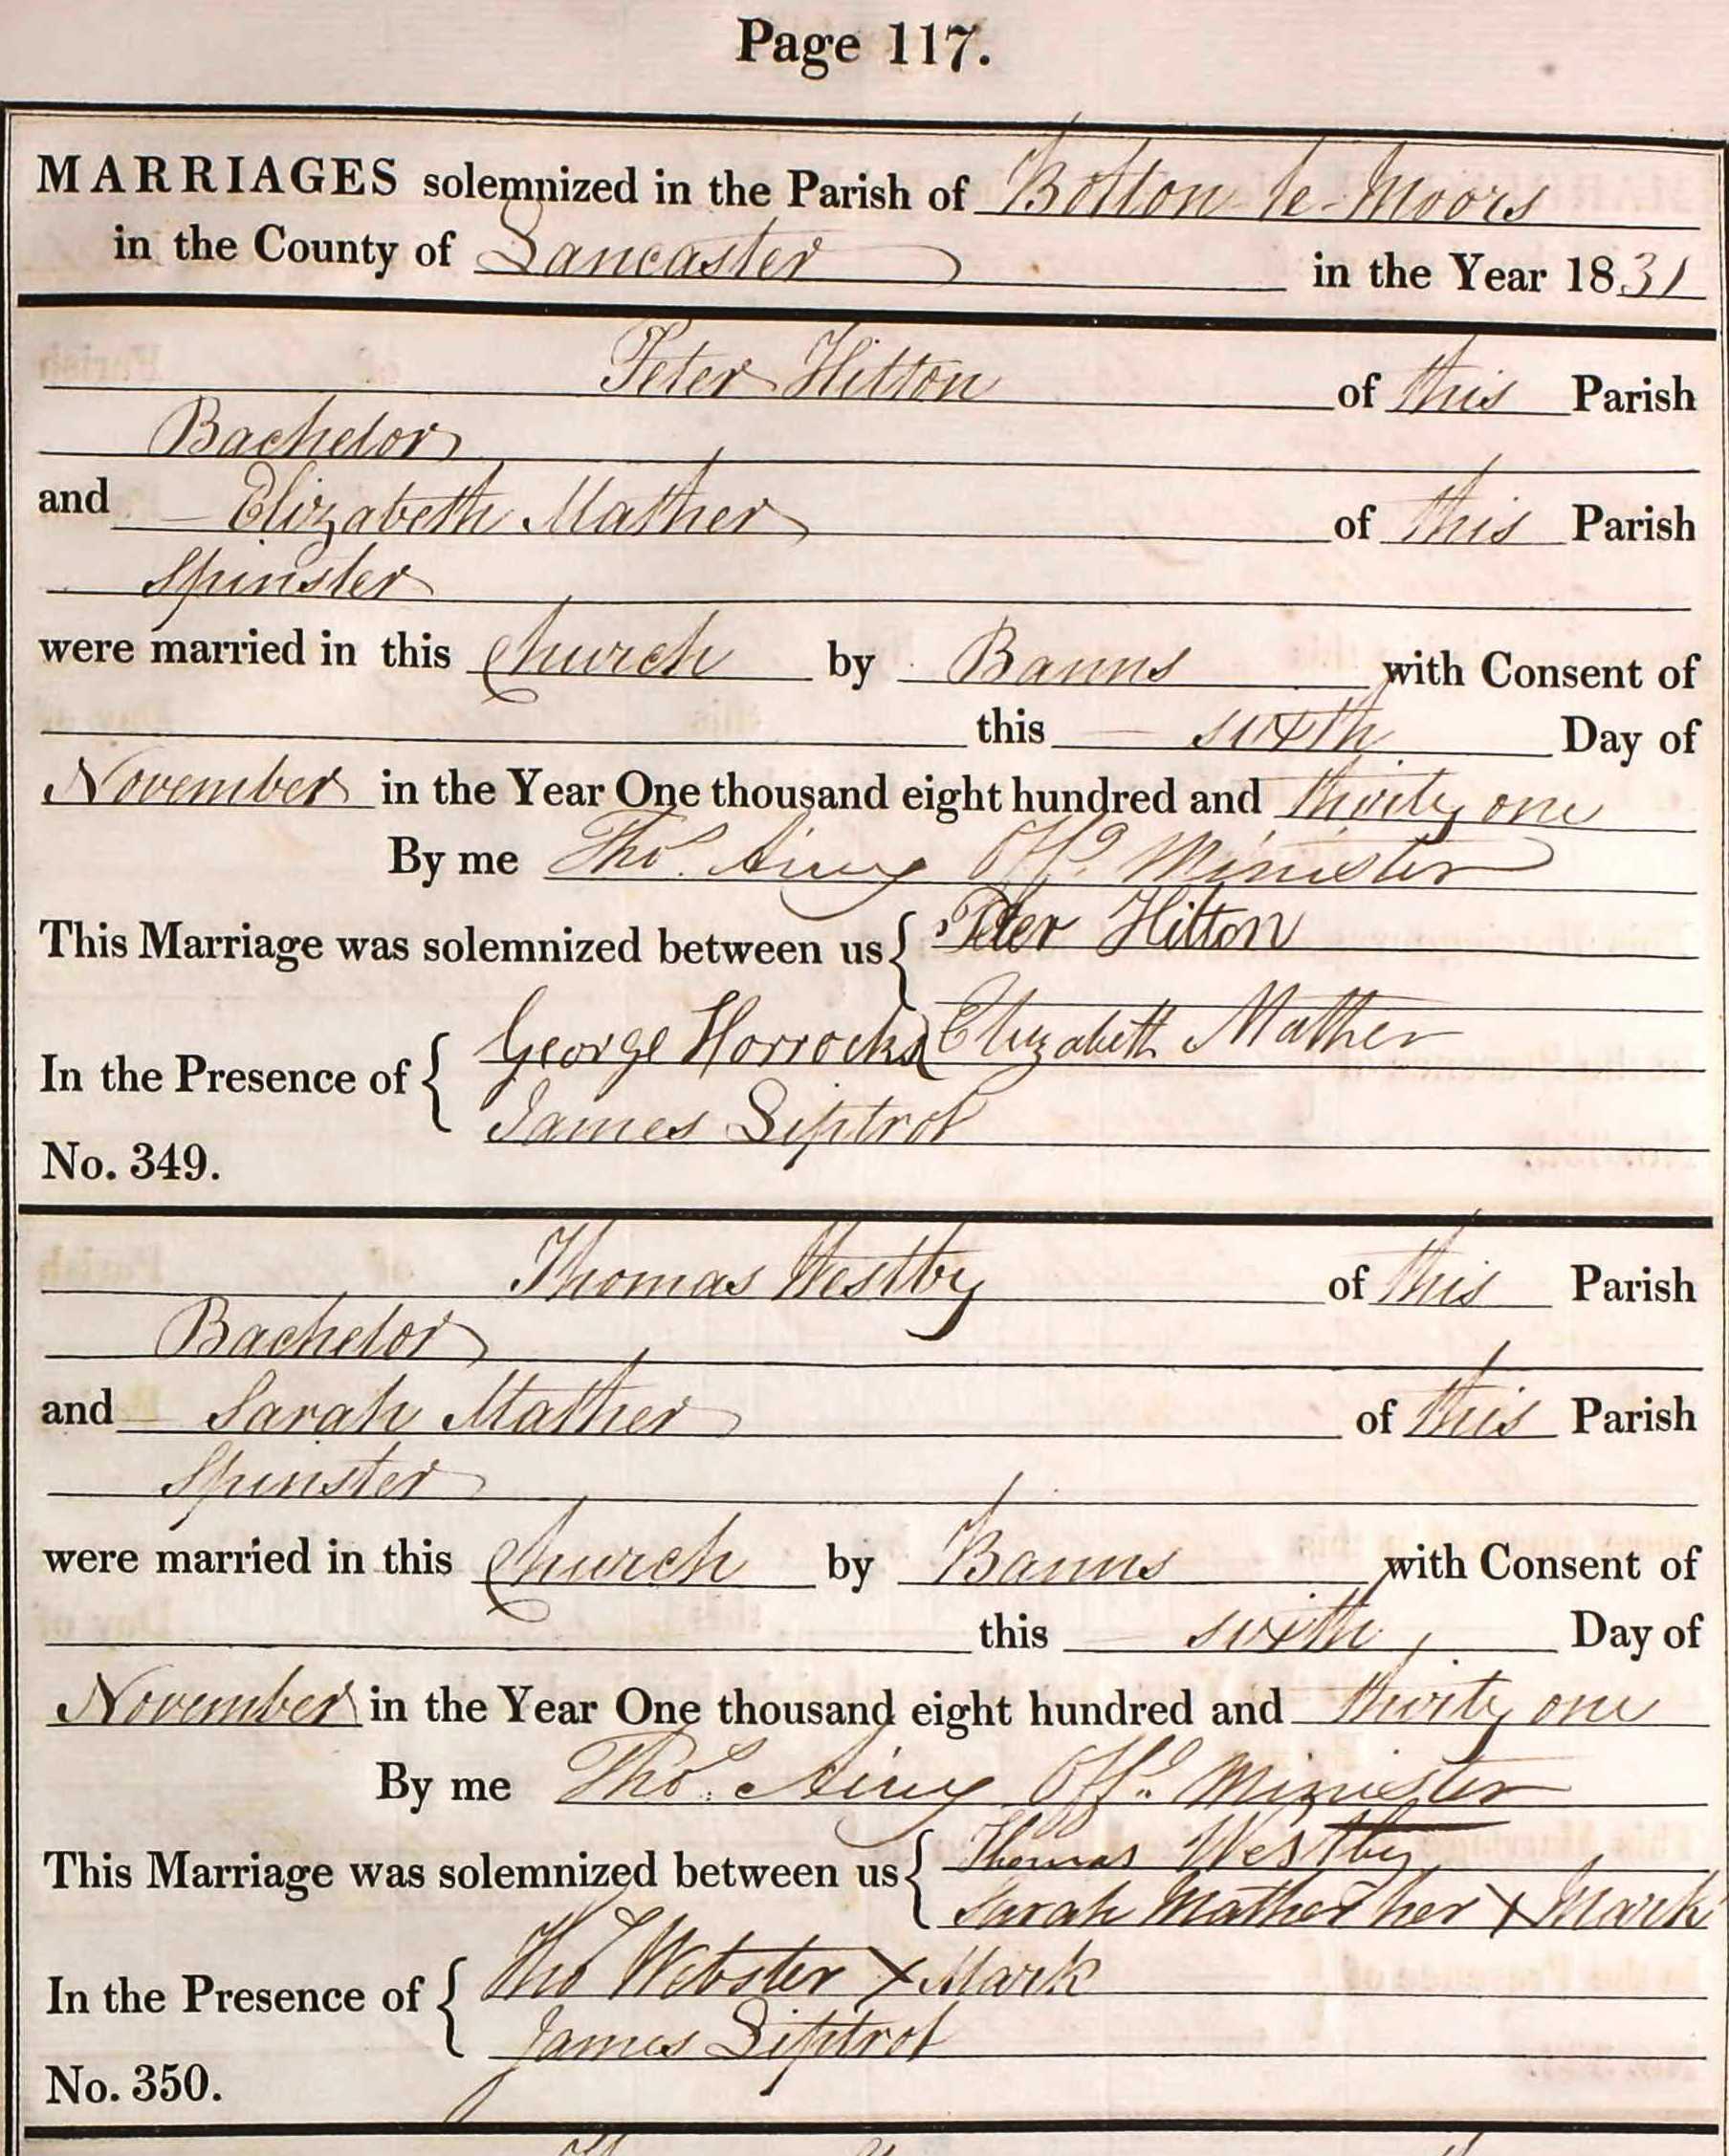 Page 117.
MARRIAGES solemnized in the Parish of Bolton le Moors
in the County of Lancaster in the Year 1831
Peter Hilton of this Parish
Bachelor
and Elizabeth Mather of this Parish
Spinster
were married in this Church by Banns with Consent of
this sixth Day of
November in the Year One thousand eight hundred and thirty one
By me Thos. Airey Offg. Minister
This Marriage was solemnized between us { Peter Hilton
Elizabeth Mather
In the Presence of { George Horrocks
James Liptrot
No. 349.
Thomas Westby of this Parish
Bachelor
and Sarah Mather of this Parish
Spinster
were married in this Church by Banns with Consent of
this sixth Day of
November in the Year One thousand eight hundred and thirty one
By me Thos. Airey Offg. Minister
This Marriage was solemnized between us { Thomas Westby
Sarah Mather her X Mark
In the Presence of { Thos Webster X Mark
James Liptrot
No. 350.